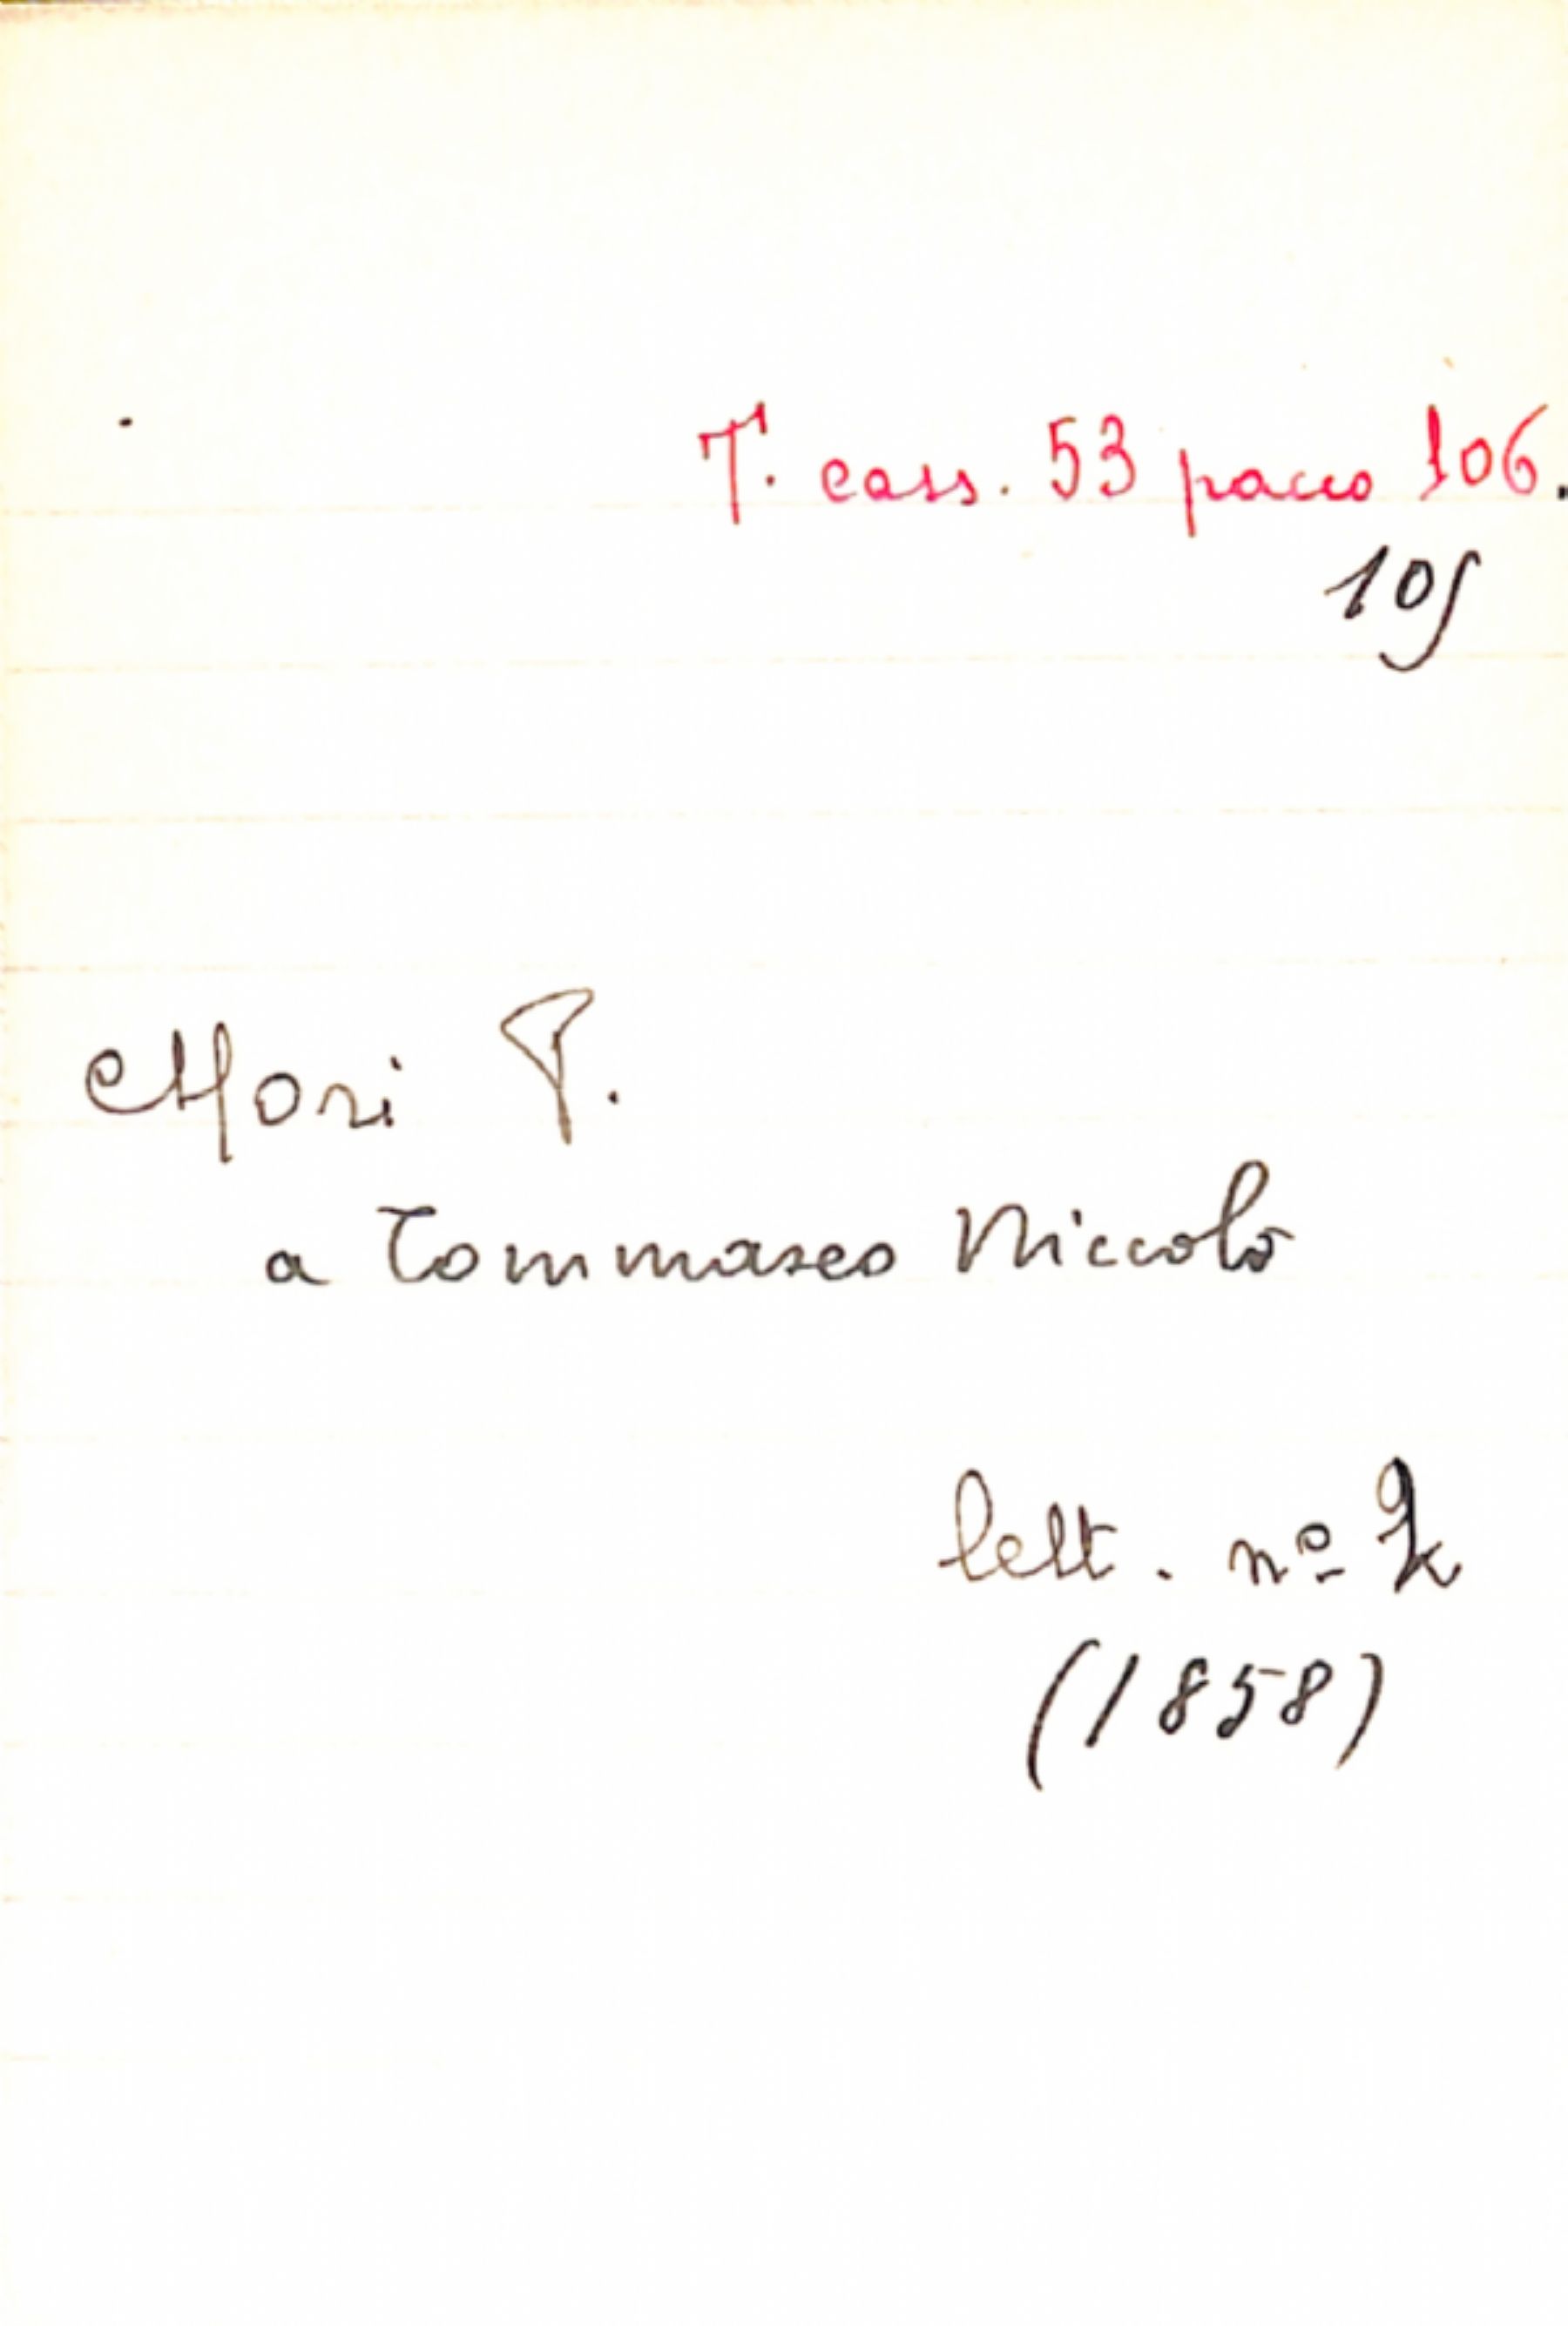 T. cass. 53 pacco 106.
105
Mori P.
a Tommaseo Niccolò
lett. nº 2
(1858)